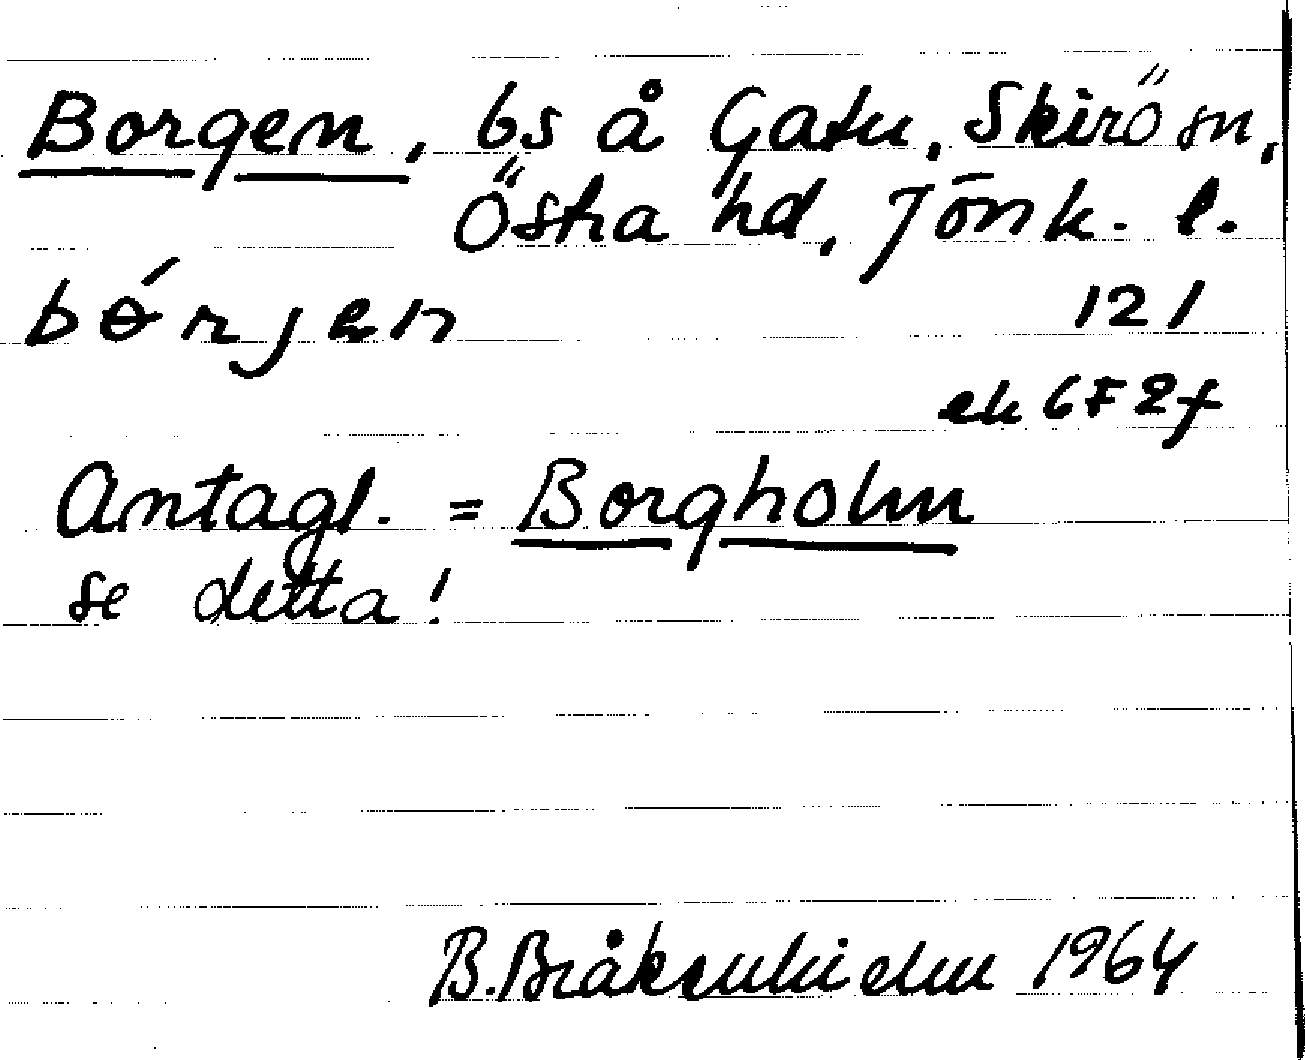 Borgen, bs å Gatu, Skirö sn,
Östra hd, Jönk. l.
bórjen 121
ek 6F2f
Antagl. = Borgholm
se detta!
B. Bråkenhielm 1964